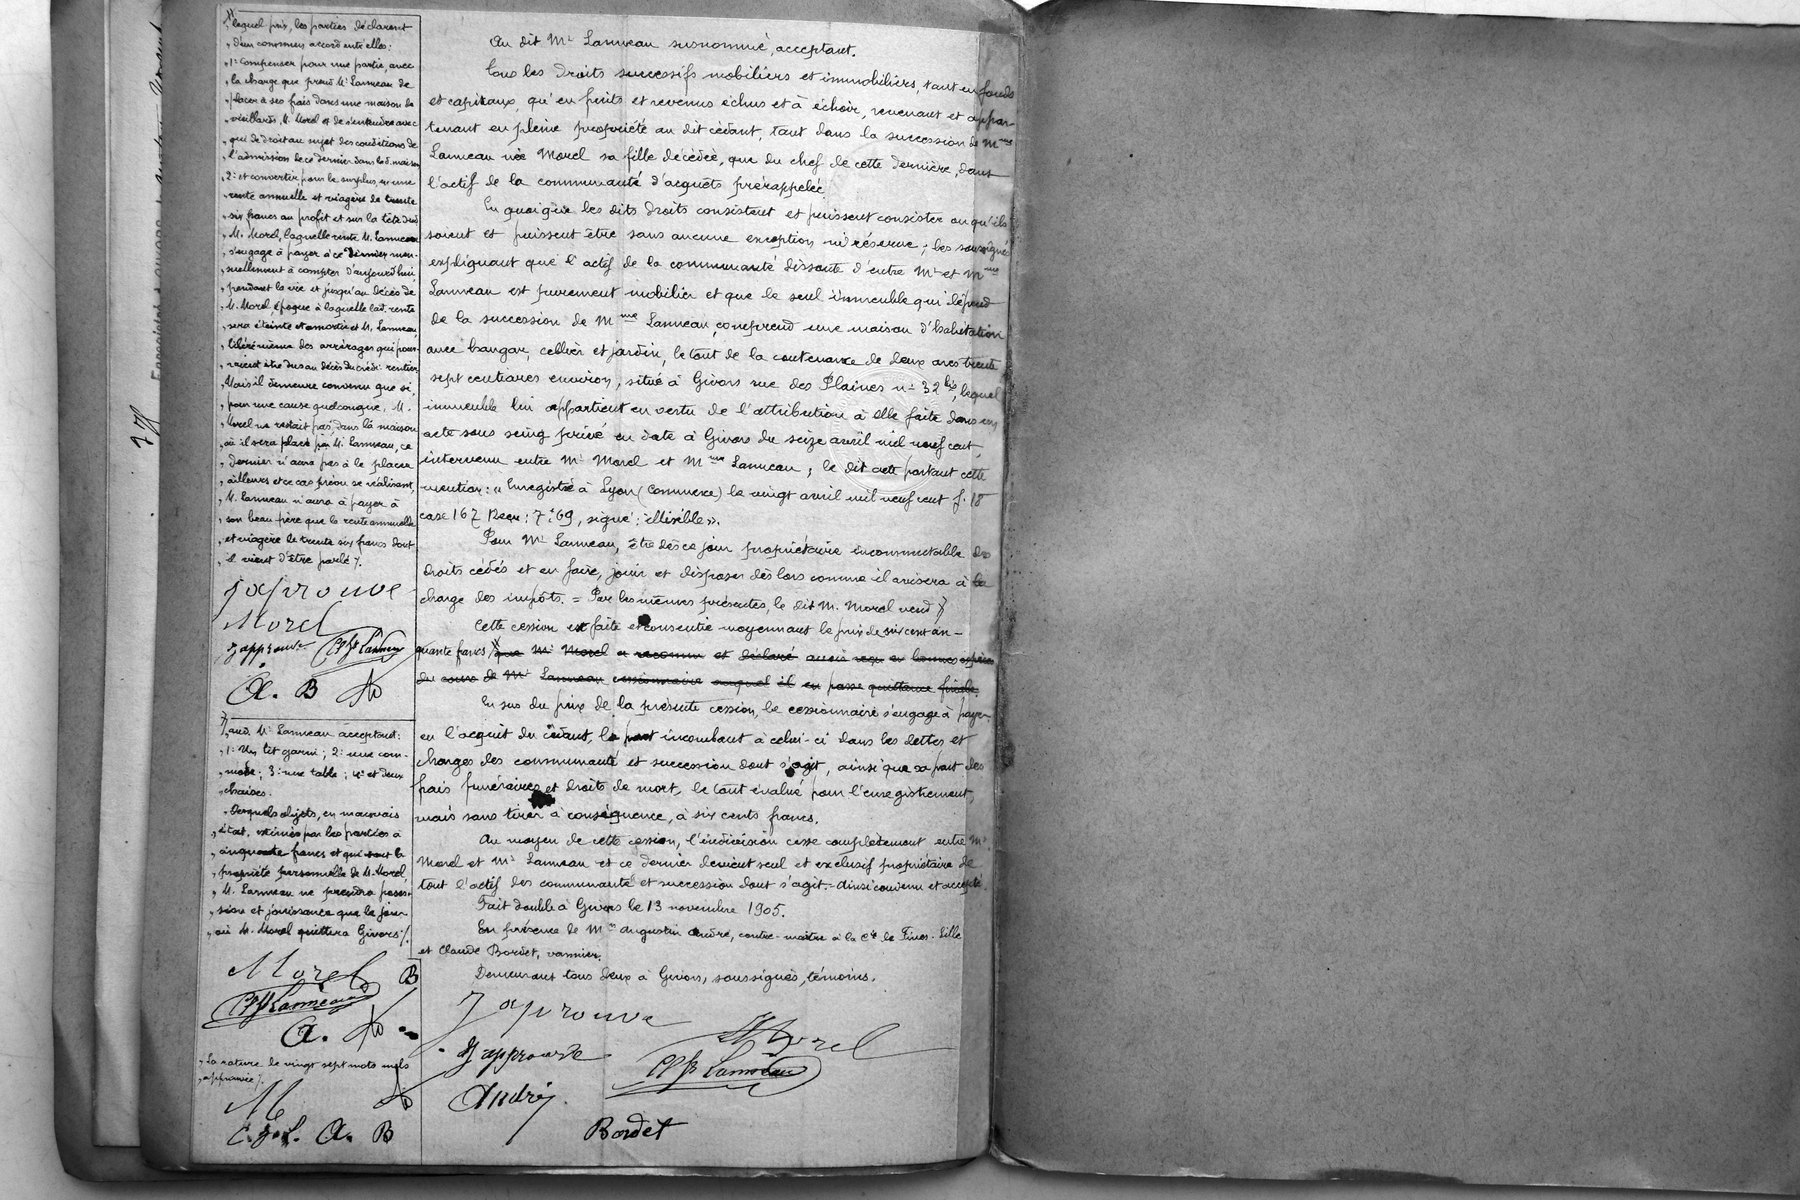 lequel prix, les parties déclarent
„ d'un commun accord entr'elles:
„ 1º Compenser pour une partie, avec
„ la charge que prend Mr Lanneau de
„ placer à ses frais dans une maison de
„ vieillards, M. Morel et de s'entendre avec
„ qui de droit au sujet des conditions de
„ l'admission de ce dernier dans lad. maison
„ 2º et convertir, pour le surplus, en une
„ rente annuelle et viagère de trente
„ six francs au profit et sur la tête dud.
„ M. Morel, laquelle rente M. Lanneau
„ s'engage à payer à ce dernier men-
„ suellement à compter d'aujourd'hui,
„ pendant la vie et jusqu'au décès de
„ M. Morel, époque à laquelle lad. rente
„ sera éteinte et amortie et M. Lanneau
„ libéré même des arrérages qui pour-
„ raient être dus au décès du crédi-rentier
„ Mais il demeure convenu que si,
„ pour une cause quelconque, M.
„ Morel ne restait pas dans la maison
„ où il sera placé par M. Lanneau, ce
„ dernier n'aura pas à le placer
„ ailleurs et ce cas prévu se réalisant,
„ M. Lanneau n'aura à payer à
„ son beau père que la rente annuelle
„ et viagère de trente six francs dont
„ il vient d'être parlé /.
japrouve
Morel
J'approuve Lanneau
A. B
„ aud. Mr Lanneau acceptant:
„ 1º Un lit garni; 2º une com-
„ mode; 3º une table; 4º et deux
„ chaises.
„ Desquels objets, en mauvais
„ état, estimés par les parties à
„ cinquante francs et qui sont la
„ propriété personnelle de M. Morel,
„ M. Lanneau ne prendra posses-
„ sion et jouissance que le jour
„ où M. Morel quittera Givors /.
Morel B
Lanneau
A.
„ La rature de vingt sept mots nuls
„ approuvée /.
M
A. B
Au dit Mr Lanneau susnommé, acceptant.
Tous les droits successifs mobiliers et immobiliers, tant en fonds
et capitaux, qu'en fruits et revenus échus et à échoir, revenant et appar-
tenant en pleine propriété au dit cédant, tant dans la succession de Mme
Lanneau née Morel sa fille décédée, que du chef de cette dernière, dans
l'actif de la communauté d'acquêts prérappelée.
En quoi que les dits droits consistent et puissent consister ou qu'ils
soient et puissent être sans aucune exception ni réserve; les soussignés
expliquant que l'actif de la communauté dissoute d'entre Mr et Mme
Lanneau est purement mobilier et que le seul immeuble qui dépend
de la succession de Mme Lanneau, comprend une maison d'habitation
avec hangar, cellier et jardin, le tout de la contenance de deux ares trente
sept centiares environ, situé à Givors rue des Plaines nº 32 bis, lequel
immeuble lui appartient en vertu de l'attribution à elle faite dans un
acte sous seing privé en date à Givors du seize avril mil neuf cent,
intervenu entre Mr Morel et Mme Lanneau; le dit acte portant cette
mention: « Enregistré à Lyon (Commerce) le vingt avril mil neuf cent f. 18
case 167 Reçu: 7f69, signé: illisible ».
Pour Mr Lanneau, être dès ce jour propriétaire incommutable des
droits cédés et en faire, jouir et disposer dès lors comme il avisera à la
charge des impôts. = Par les mêmes présentes, le dit M. Morel vend
Cette cession est faite et consentie moyennant le prix de six cent cin-
quante francs que Mr Morel a reconnu et déclaré avoir reçu en bonnes espèces
du cours de Mr Lanneau cessionnaire auquel il en passe quittance finale.
En sus du prix de la présente cession, le cessionnaire s'engage à payer
en l'acquit du cédant, la part incombant à celui-ci dans les dettes et
charges des communauté et succession dont s'agit, ainsi que sa part des
frais funéraires et droits de mort, le tout évalué pour l'enregistrement,
mais sans tirer à conséquence, à six cents francs.
Au moyen de cette cession, l'indivision cesse complètement entre Mr
Morel et Mr Lanneau et ce dernier devient seul et exclusif propriétaire de
tout l'actif des communauté et succession dont s'agit. - Ainsi convenu et accepté.
Fait double à Givors le 13 novembre 1905.
En présence de Mrs Augustin André, contre-maître à la Cie de Fives-Lille
et Claude Bordet, vannier,
Demeurant tous deux à Givors, soussignés, témoins.
Japrouve
Morel
J'approuve
Lanneau
André
Bordet